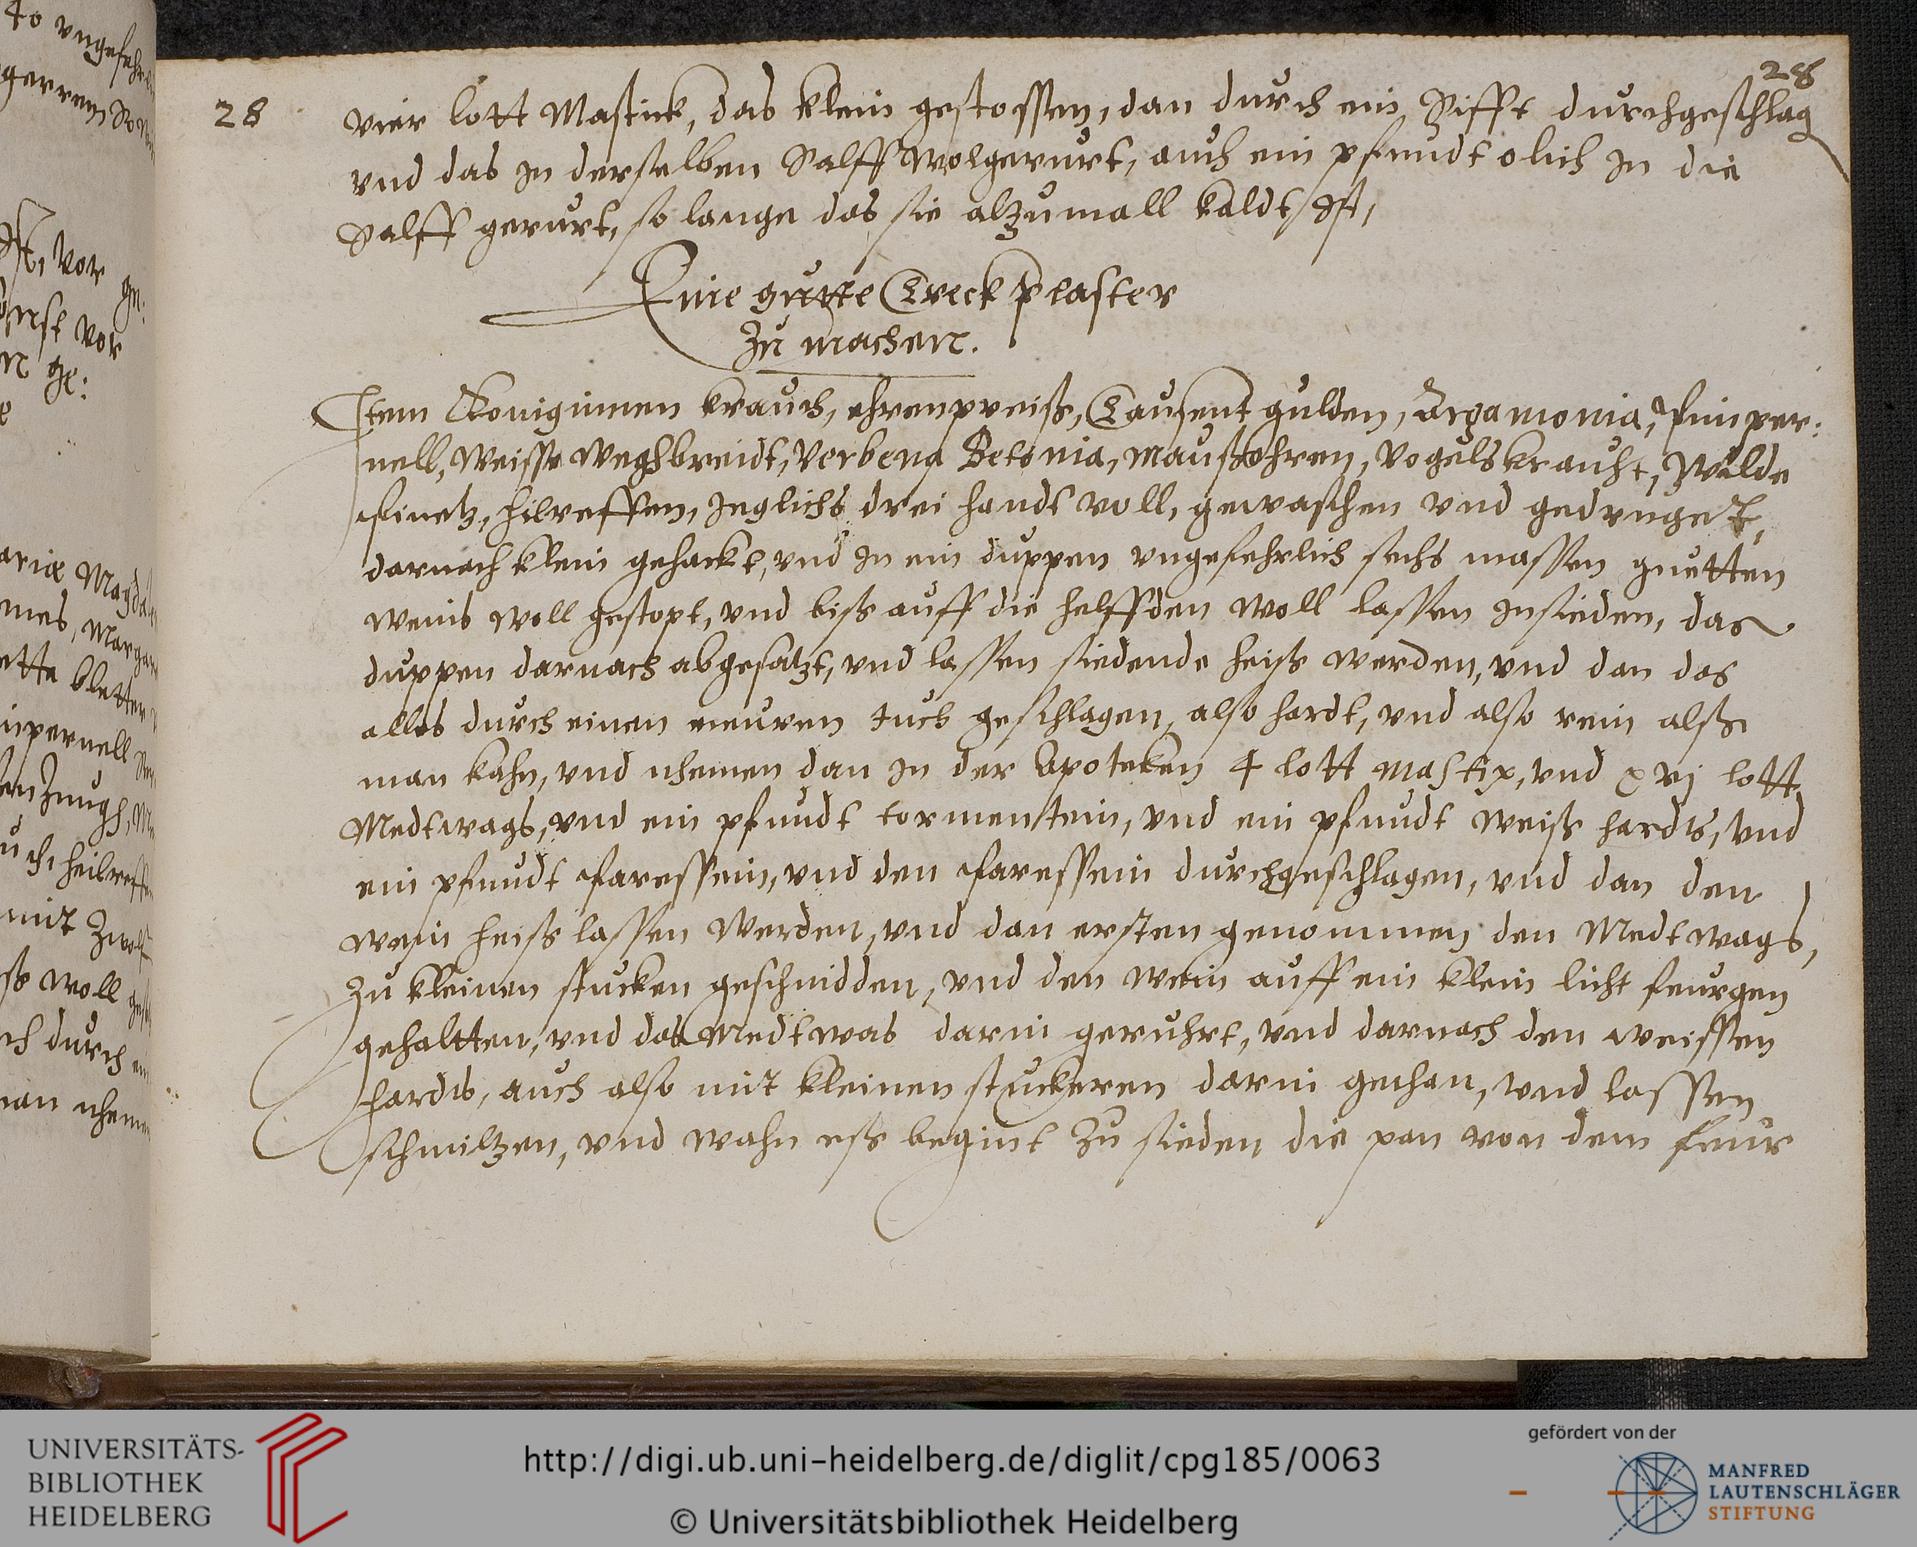 28
28
vier lott Mastick, das klein gestossen, dan durch ein Sifft durchgeschlag
vnd das in derselben Salff wolgerurt, auch ein pfundt olich in die
Salff gerurt, so lange das sie alzumall kaldt ist,
Eine gutte Treck plaster
Zu machen.
Item Koniginnen krauch, ehrenpreiß, Tausent gulden, Argamonia, Pimper:
nell, weisse weghbreidt, Verbena Betonia, maußohren, Vogelskraucht, Wilde
hilreffen, Jeglichs drei handt voll, gewaschen vnd gedruget,
darnach klein gehackt, vnd in ein duppen vngefehrlich sechs massen guetten
weins woll gestopt, vnd biß auff die helffden woll lassen insieden, das
duppen darnach abgesatzt, vnd lassen siedende heiß werden, vnd dan das
alles durch einen neuren tuch geschlagen, also hardt, vnd also rein alß
man kahn, vnd nhemen dan in der Apoteken 4 lott mastix, vnd xvj lott
Medtwags, vnd ein pfundt tormentein, vnd ein pfundt weiß hardts, vnd
ein pfundt faressein, vnd den faressein durchgeschlagen, vnd dan den
wein heiß lassen werden, vnd dan ersten genommen den Medtwags,
zu kleinen stucken geschnidden, vnd den wein auff ein klein licht feurgen
gehaltten, vnd das Medtwas darin geruhrt, vnd darnach den weissen
hardts, auch also mit kleinen stuckeren darin gethan, vnd lassen
schmiltzen, vnd wahn eß begint zu sieden die pan von dem feur
UNIVERSITÄTS-
BIBLIOTHEK
HEIDELBERG
http://digi.ub.uni-heidelberg.de/diglit/cpg185/0063
© Universitätsbibliothek Heidelberg
gefördert von der
MANFRED
LAUTENSCHLÄGER
STIFTUNG